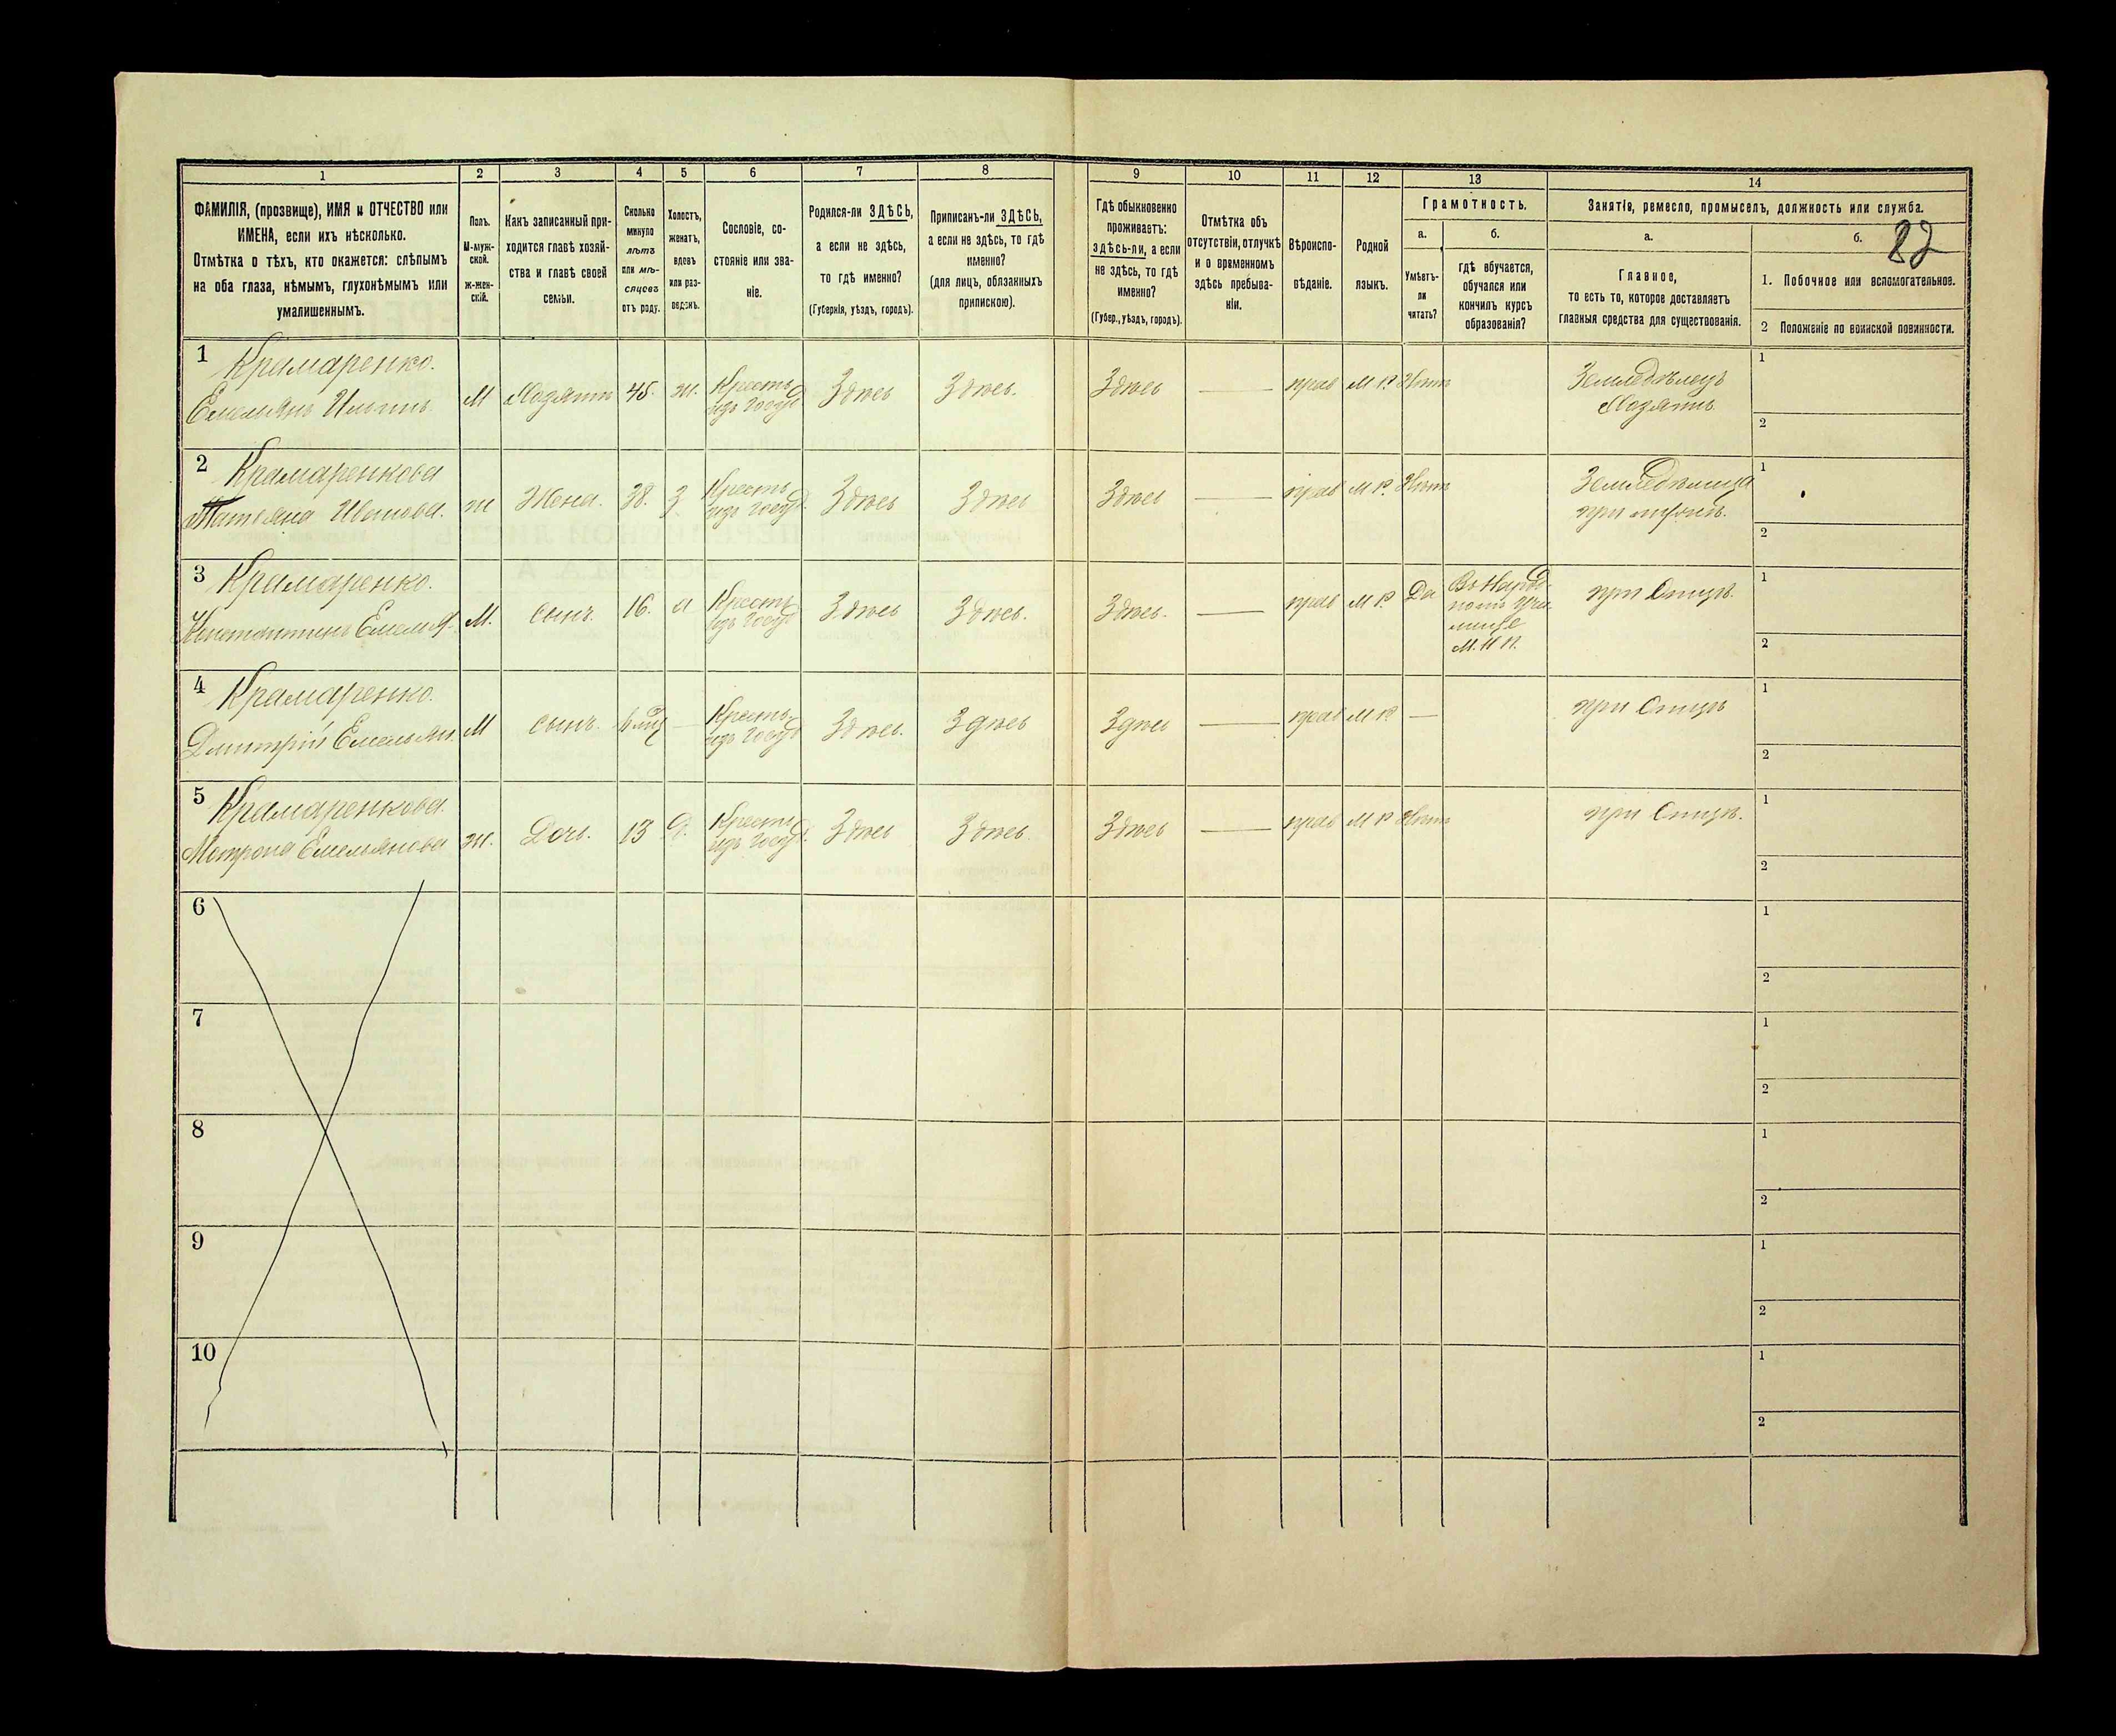 1 2 3 4 5 6 7 8 9 10 11 12 13 14
ФАМИЛІЯ, (прозвище), ИМЯ и ОТЧЕСТВО или
ИМЕНА, если ихъ нѣсколько.
Отмѣтка о тѣхъ, кто окажется: слѣпымъ
на оба глаза, нѣмымъ, глухонѣмымъ или
умалишеннымъ.
Полъ.
М-муж-
ской.
Ж-жен-
скій.
Какъ записанный при-
ходится главѣ хозяй-
ства и главѣ своей
семьи.
Сколько
минуло
лѣтъ
или мѣ-
сяцевъ
отъ роду.
Холостъ,
женатъ,
вдовъ
или раз-
веденъ.
Сословіе, со-
стояніе или зва-
ніе.
Родился-ли ЗДѢСЬ,
а если не здѣсь,
то гдѣ именно?
(Губернія, уѣздъ, городъ).
Приписанъ-ли ЗДѢСЬ,
а если не здѣсь, то гдѣ
именно?
(для лицъ, обязанныхъ
припискою).
Гдѣ обыкновенно
проживаетъ:
здѣсь-ли, а если
не здѣсь, то гдѣ
именно?
(Губер., уѣздъ, городъ).
Отмѣтка объ
отсутствіи, отлучкѣ
и о временномъ
здѣсь пребыва-
ніи.
Вѣроиспо-
вѣданіе.
Родной
языкъ.
Грамотность.
а.
Умѣетъ-
ли
читать?
б.
гдѣ обучается,
обучался или
кончилъ курсъ
образованія?
Занятіе, ремесло, промыселъ, должность или служба.
а.
Главное,
то есть то, которое доставляетъ
главныя средства для существованія.
б. 82
1. Побочное или вспомогательное.
2 Положеніе по воинской повинности.
1 Крамаренко.
Емельянъ М Хозяинъ 45. ж. Крестъ. изъ Госуд. Здѣсь Здѣсь. Здѣсь — прав М Р Нѣтъ Земледѣлецъ
Хозяинъ
1
2
2 Крамаренкова
Татьяна Иванова. ж Жена. 38. З. Крестъ. изъ Госуд. Здѣсь Здѣсь Здѣсь — прав М Р. Нѣтъ Земледѣлица
при мужѣ.
1
2
3 Крамаренко.
Константинъ Емелья. М. сынъ. 16. Крестъ. изъ Госуд. Здѣсь Здѣсь. Здѣсь. — прав М Р. Да Въ Народ-
номъ Учи-
лище
М. Н П.
при Отцѣ.
1
2
4 Крамаренко.
Дмитрій Емельян. М сынъ. 6 мѣс — Крестъ. изъ Госуд. Здѣсь. Здѣсь Здѣсь — прав М Р — при Отцѣ
1
2
5 Крамаренкова.
Матрона Емельянова ж. Дочь. 13 Д. Крестъ. изъ Госуд. Здѣсь Здѣсь. Здѣсь — прав М Р Нѣтъ при Отцѣ.
1
2
6
1
2
7
1
2
8
1
2
9
1
2
10
1
2